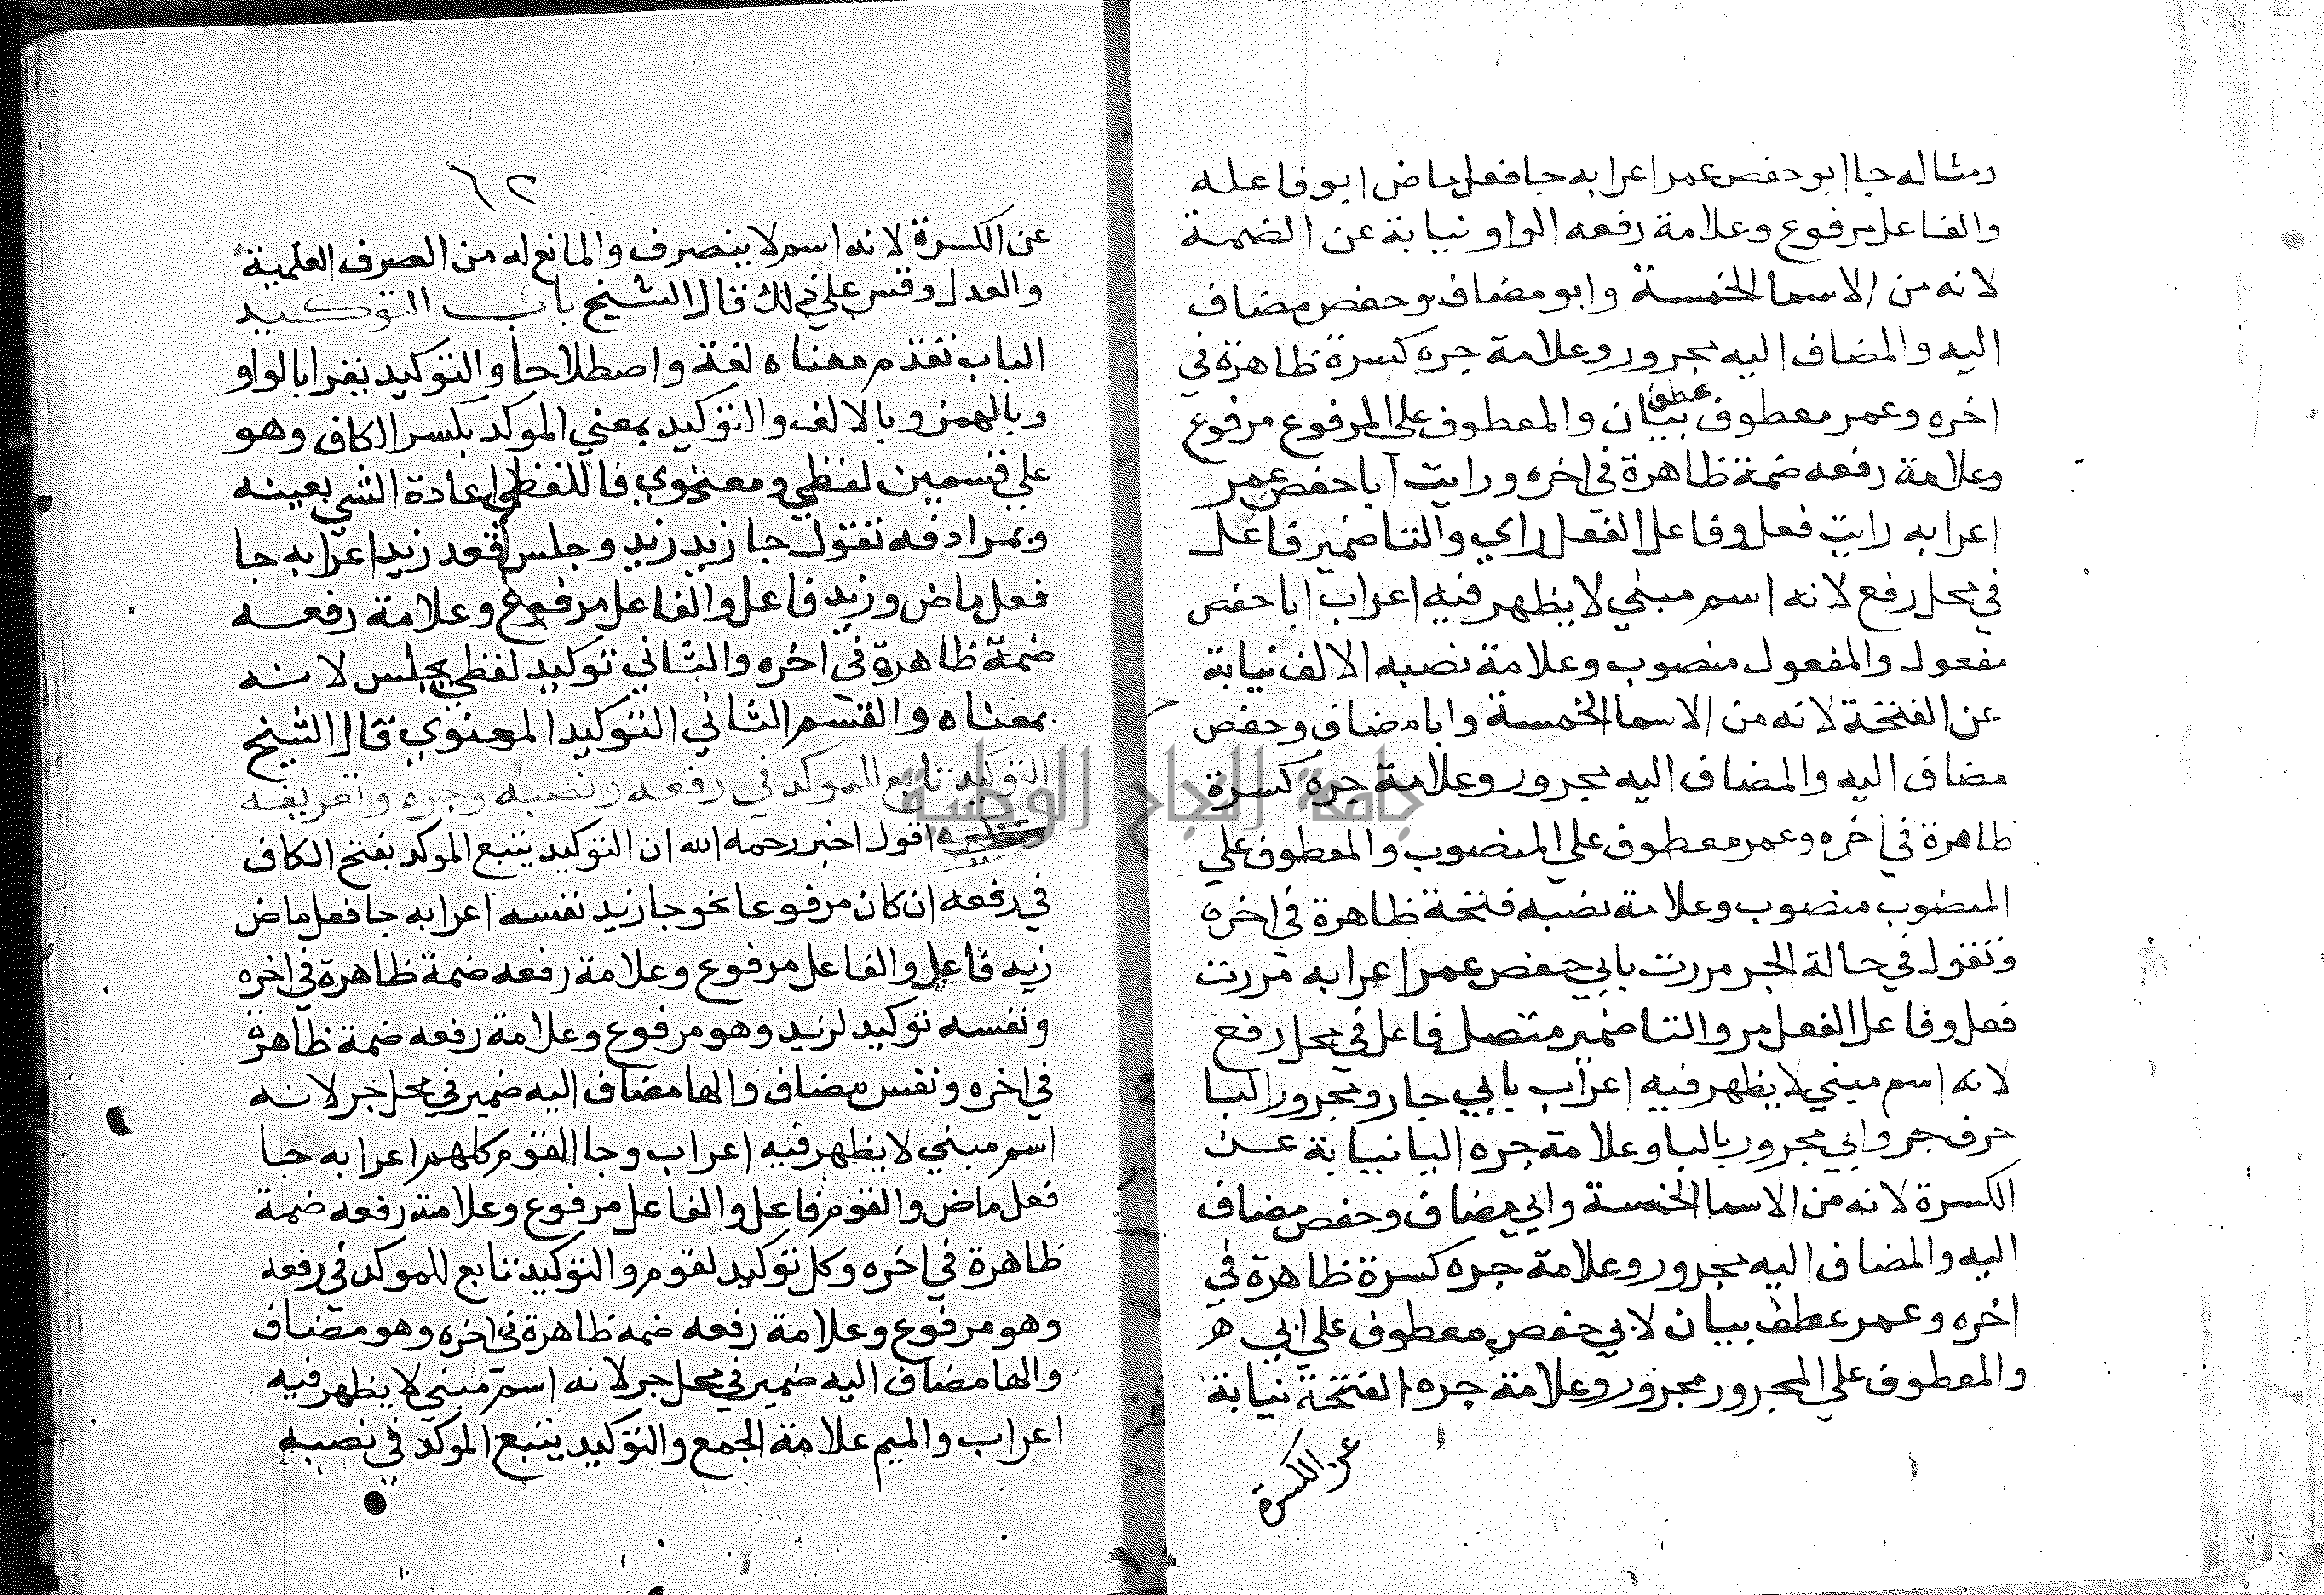 ومثاله جا ابو حفص عمر اعرابه جا فعل ماض ابو فاعله
والفاعل مرفوع وعلامة رفعه الواو نيابة عن الضمة
لانه من الاسما الخمسة وابو مضاف وحفص مضاف
اليه والمضاف اليه مجرور وعلامة جره كسرة ظاهرة في
اخره وعمر معطوف عطف بيان والمعطوف علي المرفوع مرفوع
وعلامة رفعه ضمة ظاهرة في اخره ورايت ابا حفص عمر
اعرابه رايت فعل وفاعل الفعل راي والتا ضمير فاعل
في محل رفع لانه اسم مبني لا يظهر فيه اعراب ابا حفص
مفعول والمفعول منصوب وعلامة نصبه الالف نيابة
عن الفتحة لانه من الاسما الخمسة وابا مضاف وحفص
مضاف اليه والمضاف اليه مجرور وعلامة جره كسرة
ظاهرة في اخره وعمر معطوف علي المنصوب والمعطوف علي
المنصوب منصوب وعلامة نصبه فتحة ظاهرة في اخره
وتقول في حالة الجر مررت بابي حفص عمر اعرابه مررت
فعل وفاعل الفعل مر والتا ضمير متصل فاعل في محل رفع
لانه اسم مبني لا يظهر فيه اعراب بابي جار ومجرور البا
حرف جر وابي مجرور بالبا وعلامة جره اليا نيابة عن
الكسرة لانه من الاسما الخمسة وابي مضاف وحفص مضاف
اليه والمضاف اليه مجرور وعلامة جره كسرة ظاهرة في
اخره وعمر عطف بيان لابي حفص معطوف علي ابي
والمعطوف علي المجرور مجرور وعلامة جره الفتحة نيابة
عن الكسرة
٦٢
عن الكسرة لانه اسم لا ينصرف والمانع له من الصرف العلمية
والعدل وقس علي ذلك قال الشيخ باب التوكيد
الباب تقدم معناه لغة واصطلاحا والتوكيد يقرا بالواو
وبالهمز وبالالف والتوكيد بمعني الموكد بكسر الكاف وهو
علي قسمين لفظي ومعنوي فاللفظي اعادة الشي بعينه
وبمرادفه تقول جا زيد زيد وجلس قعد زيد اعرابه جا
فعل ماض وزيد فاعل والفاعل مرفوع وعلامة رفعه
ضمة ظاهرة في اخره والثاني توكيد لفظي بجلس لانه
بمعناه والقسم الثاني التوكيد المعنوي قال الشيخ
التوكيد تابع للموكد في رفعه ونصبه وجره وتعريفه
اقول اخبر رحمه الله ان التوكيد يتبع الموكد بفتح الكاف
في رفعه ان كان مرفوعا نحو جا زيد نفسه اعرابه جا فعل ماض
زيد فاعل والفاعل مرفوع وعلامة رفعه ضمة ظاهرة في اخره
ونفسه توكيد لزيد وهو مرفوع وعلامة رفعه ضمة ظاهرة
في اخره ونفس مضاف والها مضاف اليه ضمير في محل جر لانه
اسم مبني لا يظهر فيه اعراب وجا القوم كلهم اعرابه جا
فعل ماض والقوم فاعل والفاعل مرفوع وعلامة رفعه ضمة
ظاهرة في اخره وكل توكيد لقوم والتوكيد تابع للموكد في رفعه
وهو مرفوع وعلامة رفعه ضمه ظاهرة في اخره وهو مضاف
والها مضاف اليه ضمير في محل جر لانه اسم مبني لا يظهر فيه
اعراب والميم علامة الجمع والتوكيد يتبع الموكد في نصبه
جامعة النجاح الوطنية